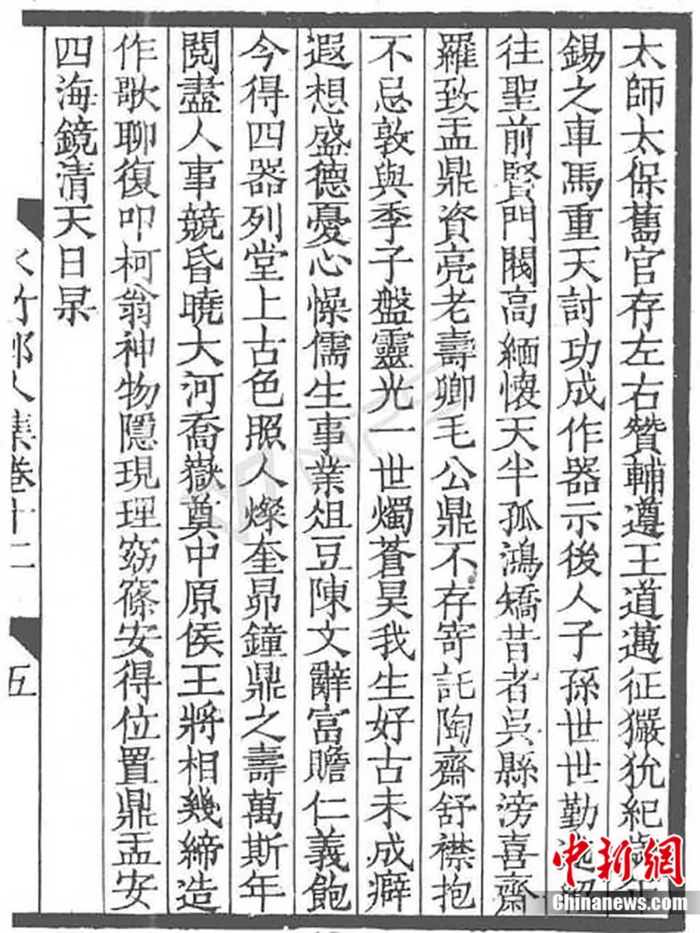 太師太保舊官存左右贊輔遵王道邁征玁狁紀歲
錫之車馬重天討功成作器示後人子孫世世勤
往聖前賢門閥高緬懷天半孤鴻矯昔者吳縣滂喜齋
羅致盂鼎資亮老壽卿毛公鼎不存寄託陶齋舒襟抱
不忌敦與季子盤靈光一世燭蒼昊我生好古未成癖
遐想盛德憂心懆儒生事業俎豆陳文辭富贍仁義飽
今得四器列堂上古色照人燦奎昴鐘鼎之壽萬斯年
閱盡人事競昏曉大河喬嶽奠中原侯王將相幾締造
作歌聊復叩柯翁神物隱現理窈篠安得位置鼎盂安
四海鏡清天日杲
水竹邨人集卷十二
五
中新網
Chinanews.com